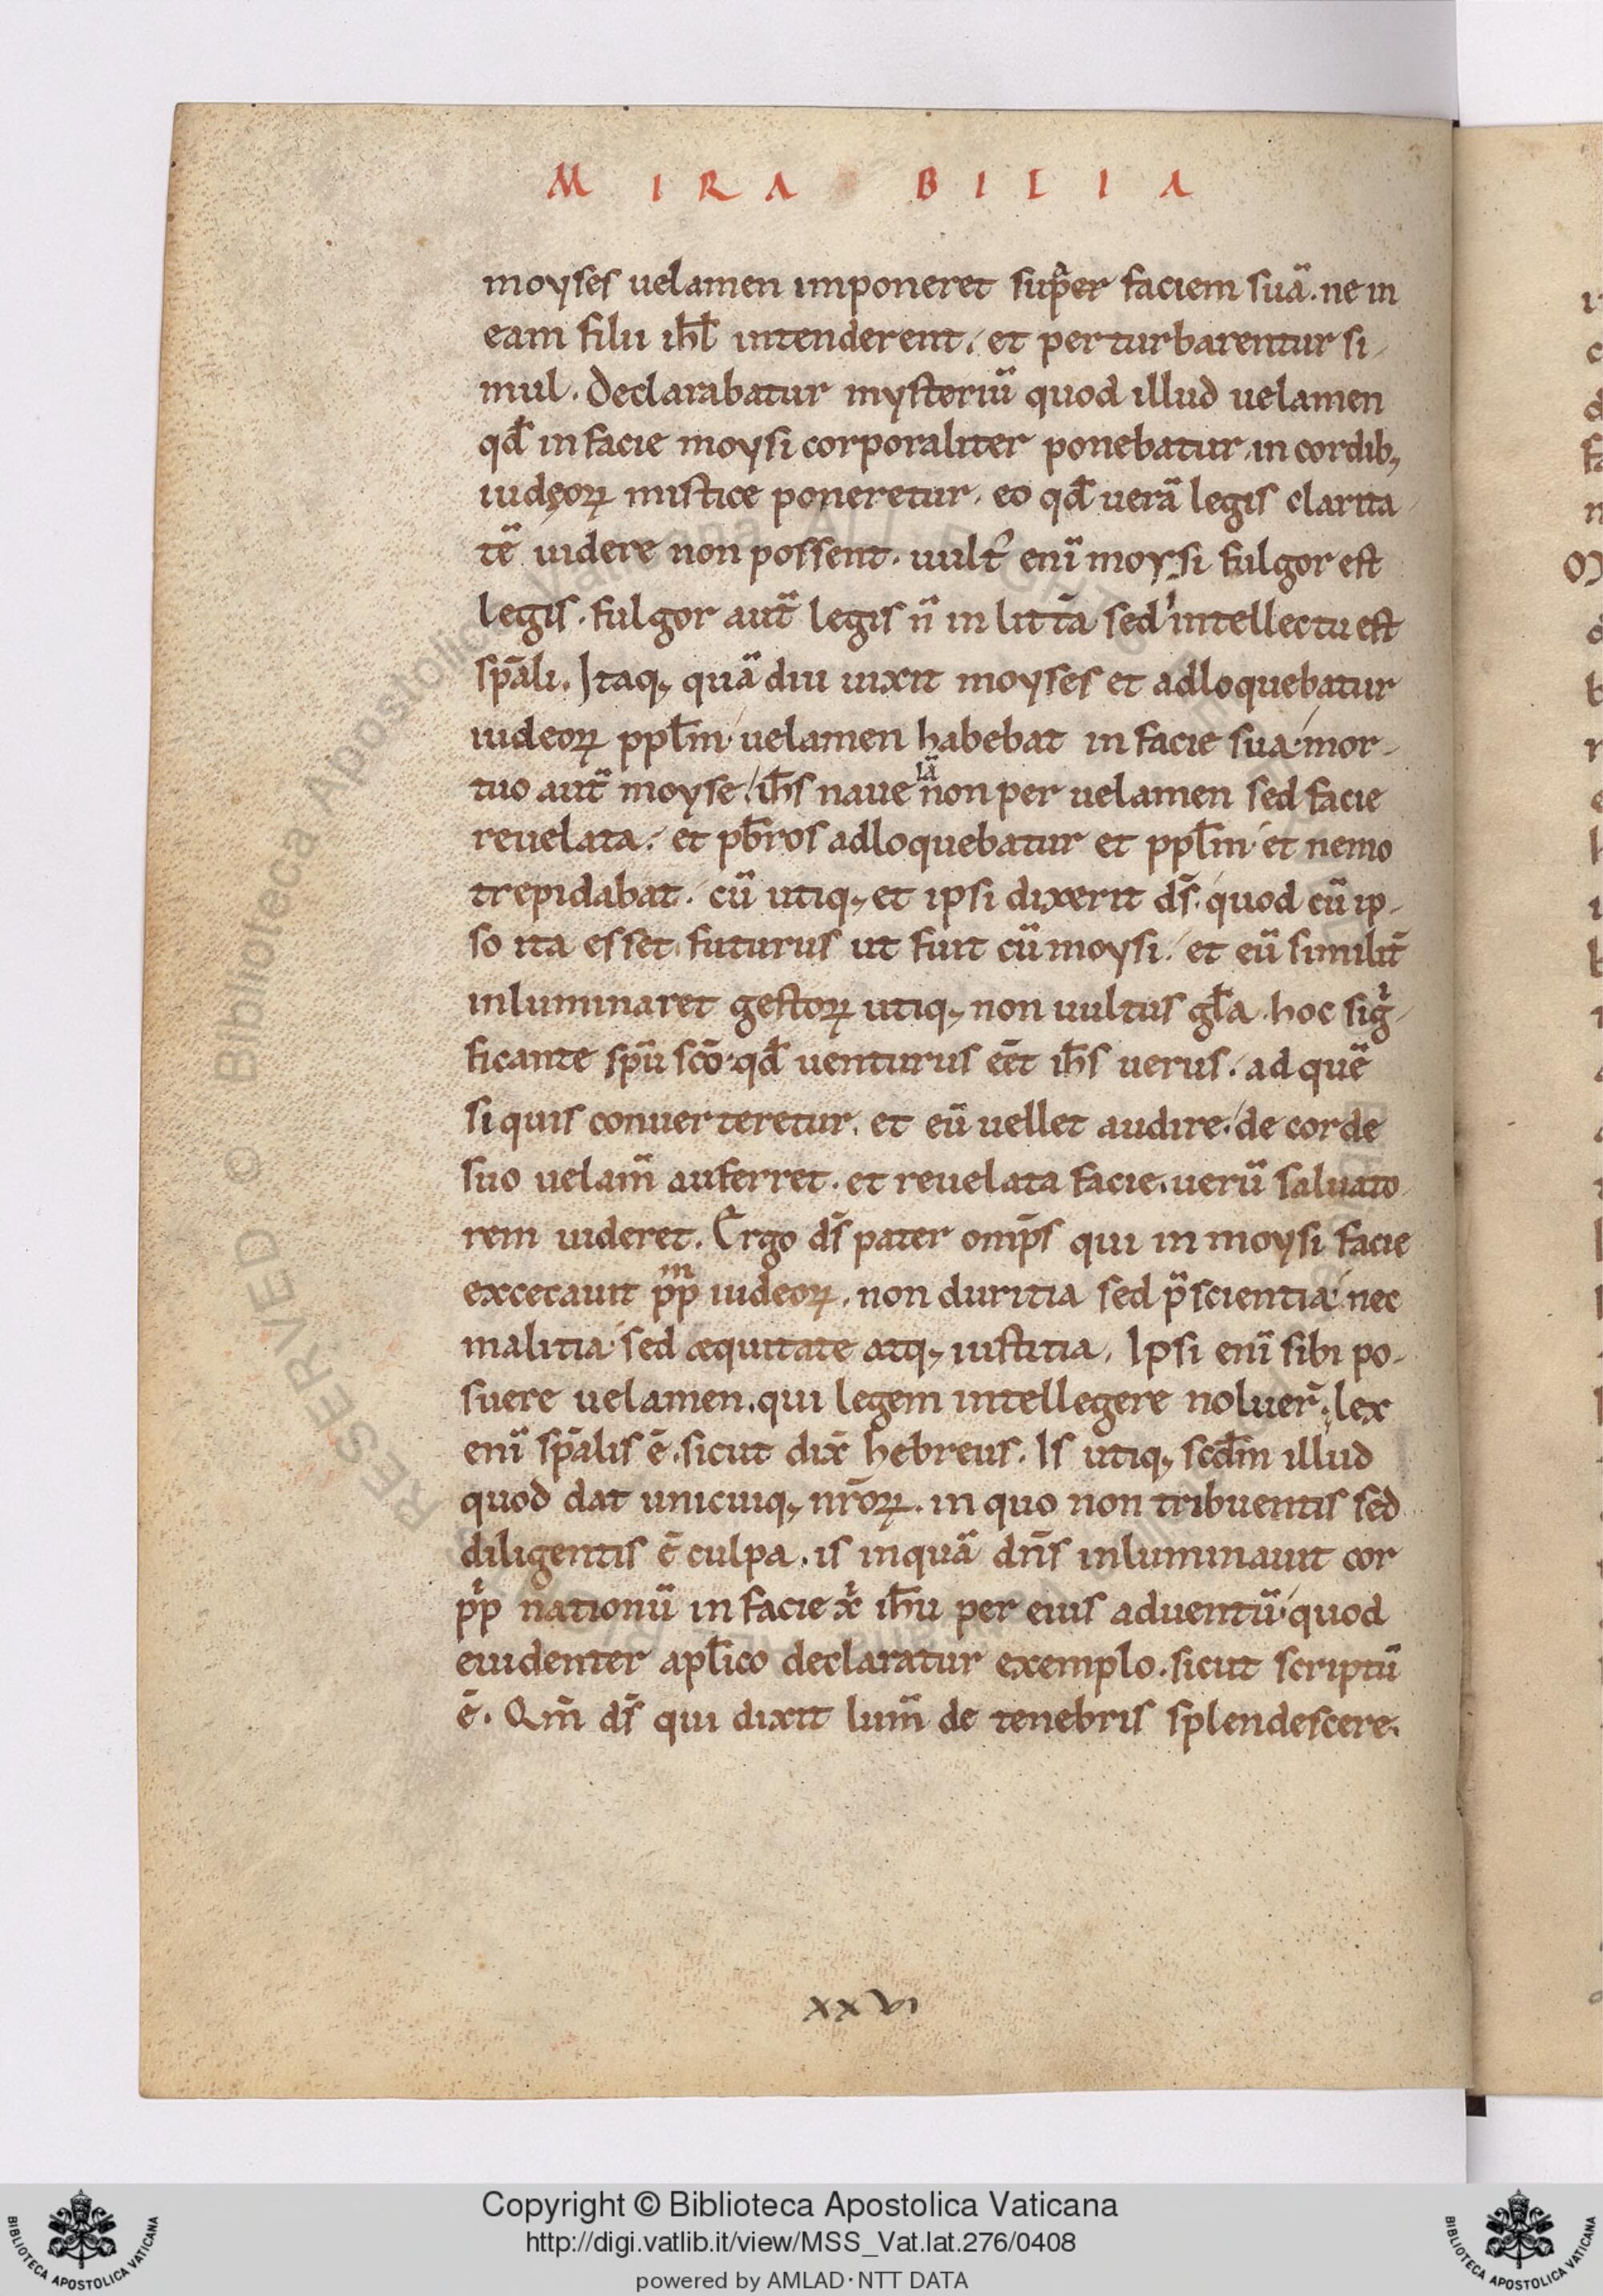 M I R A B I L I A
moyses uelamen imponeret sup̄er faciem suā. ne in
eam filii ihl̄ intenderent. et perturbarentur si-
mul. Declarabatur mysteriū quod illud uelamen
qd̄ in facie moysi corporaliter ponebatur. in cordib;
iudęoꝝ mistice poneretur. eo qd̄ uerā legis clarita-
tē uidere non possent. uult᾽ enī moysi fulgor est
legis. fulgor aut̄ legis n̄ in litt̄a sed intellectu est
sp̄ali. Itaq; quādiu uixit moyses et adloquebatur
iudeoꝝ ppl̄m uelamen habebat in facie sua. mor-
tuo aut̄ moyse. ih̄s naue iā non per uelamen sed facie
reuelata. et pb̄ros adloquebatur et ppl̄m et nemo
trepidabat. cū utiq; et ipsi dixerit ds̄. quod cū ip-
so ita esset futurus ut fuit cū moysi. et eū similit̄
inluminaret gestoꝝ utiq; non uultus gl̄a. hoc sigͥ-
ficante sp̄u sc̄o. qd̄ uenturus eēt ih̄s uerus. ad quē
si quis conuerteretur. et eū uellet audire. de corde
suo uelam̄ auferret. et reuelata facie. uerū saluato-
rem uideret. Ergo ds̄ pater omp̄s qui in moysi facie
excecauit pp̄m iudeoꝝ. non duritia sed p̄scientia. nec
malitia sed æquitate atq; iustitia. Ipsi enī sibi po-
suere uelamen. qui legem intellegere noluer̄. lex
enī sp̄alis ē. sicut dix̄ hebreus. Is utiq; scd̄m illud
quod dat unicuiq; nr̄oꝝ. in quo non tribuentis sed
diligentis ē culpa. is inquā dn̄s inluminauit cor
pͥp nationū in facie xͥ ih̄u per eius aduentū. quod
euidenter apl̄ico declaratur exemplo. sicut scriptū
ē. Qm̄ ds̄ qui dixit lum̄ de tenebris splendescere.
xxvi
Copyright © Biblioteca Apostolica Vaticana
http://digi.vatlib.it/view/MSS_Vat.lat.276/0408
powered by AMLAD·NTT DATA